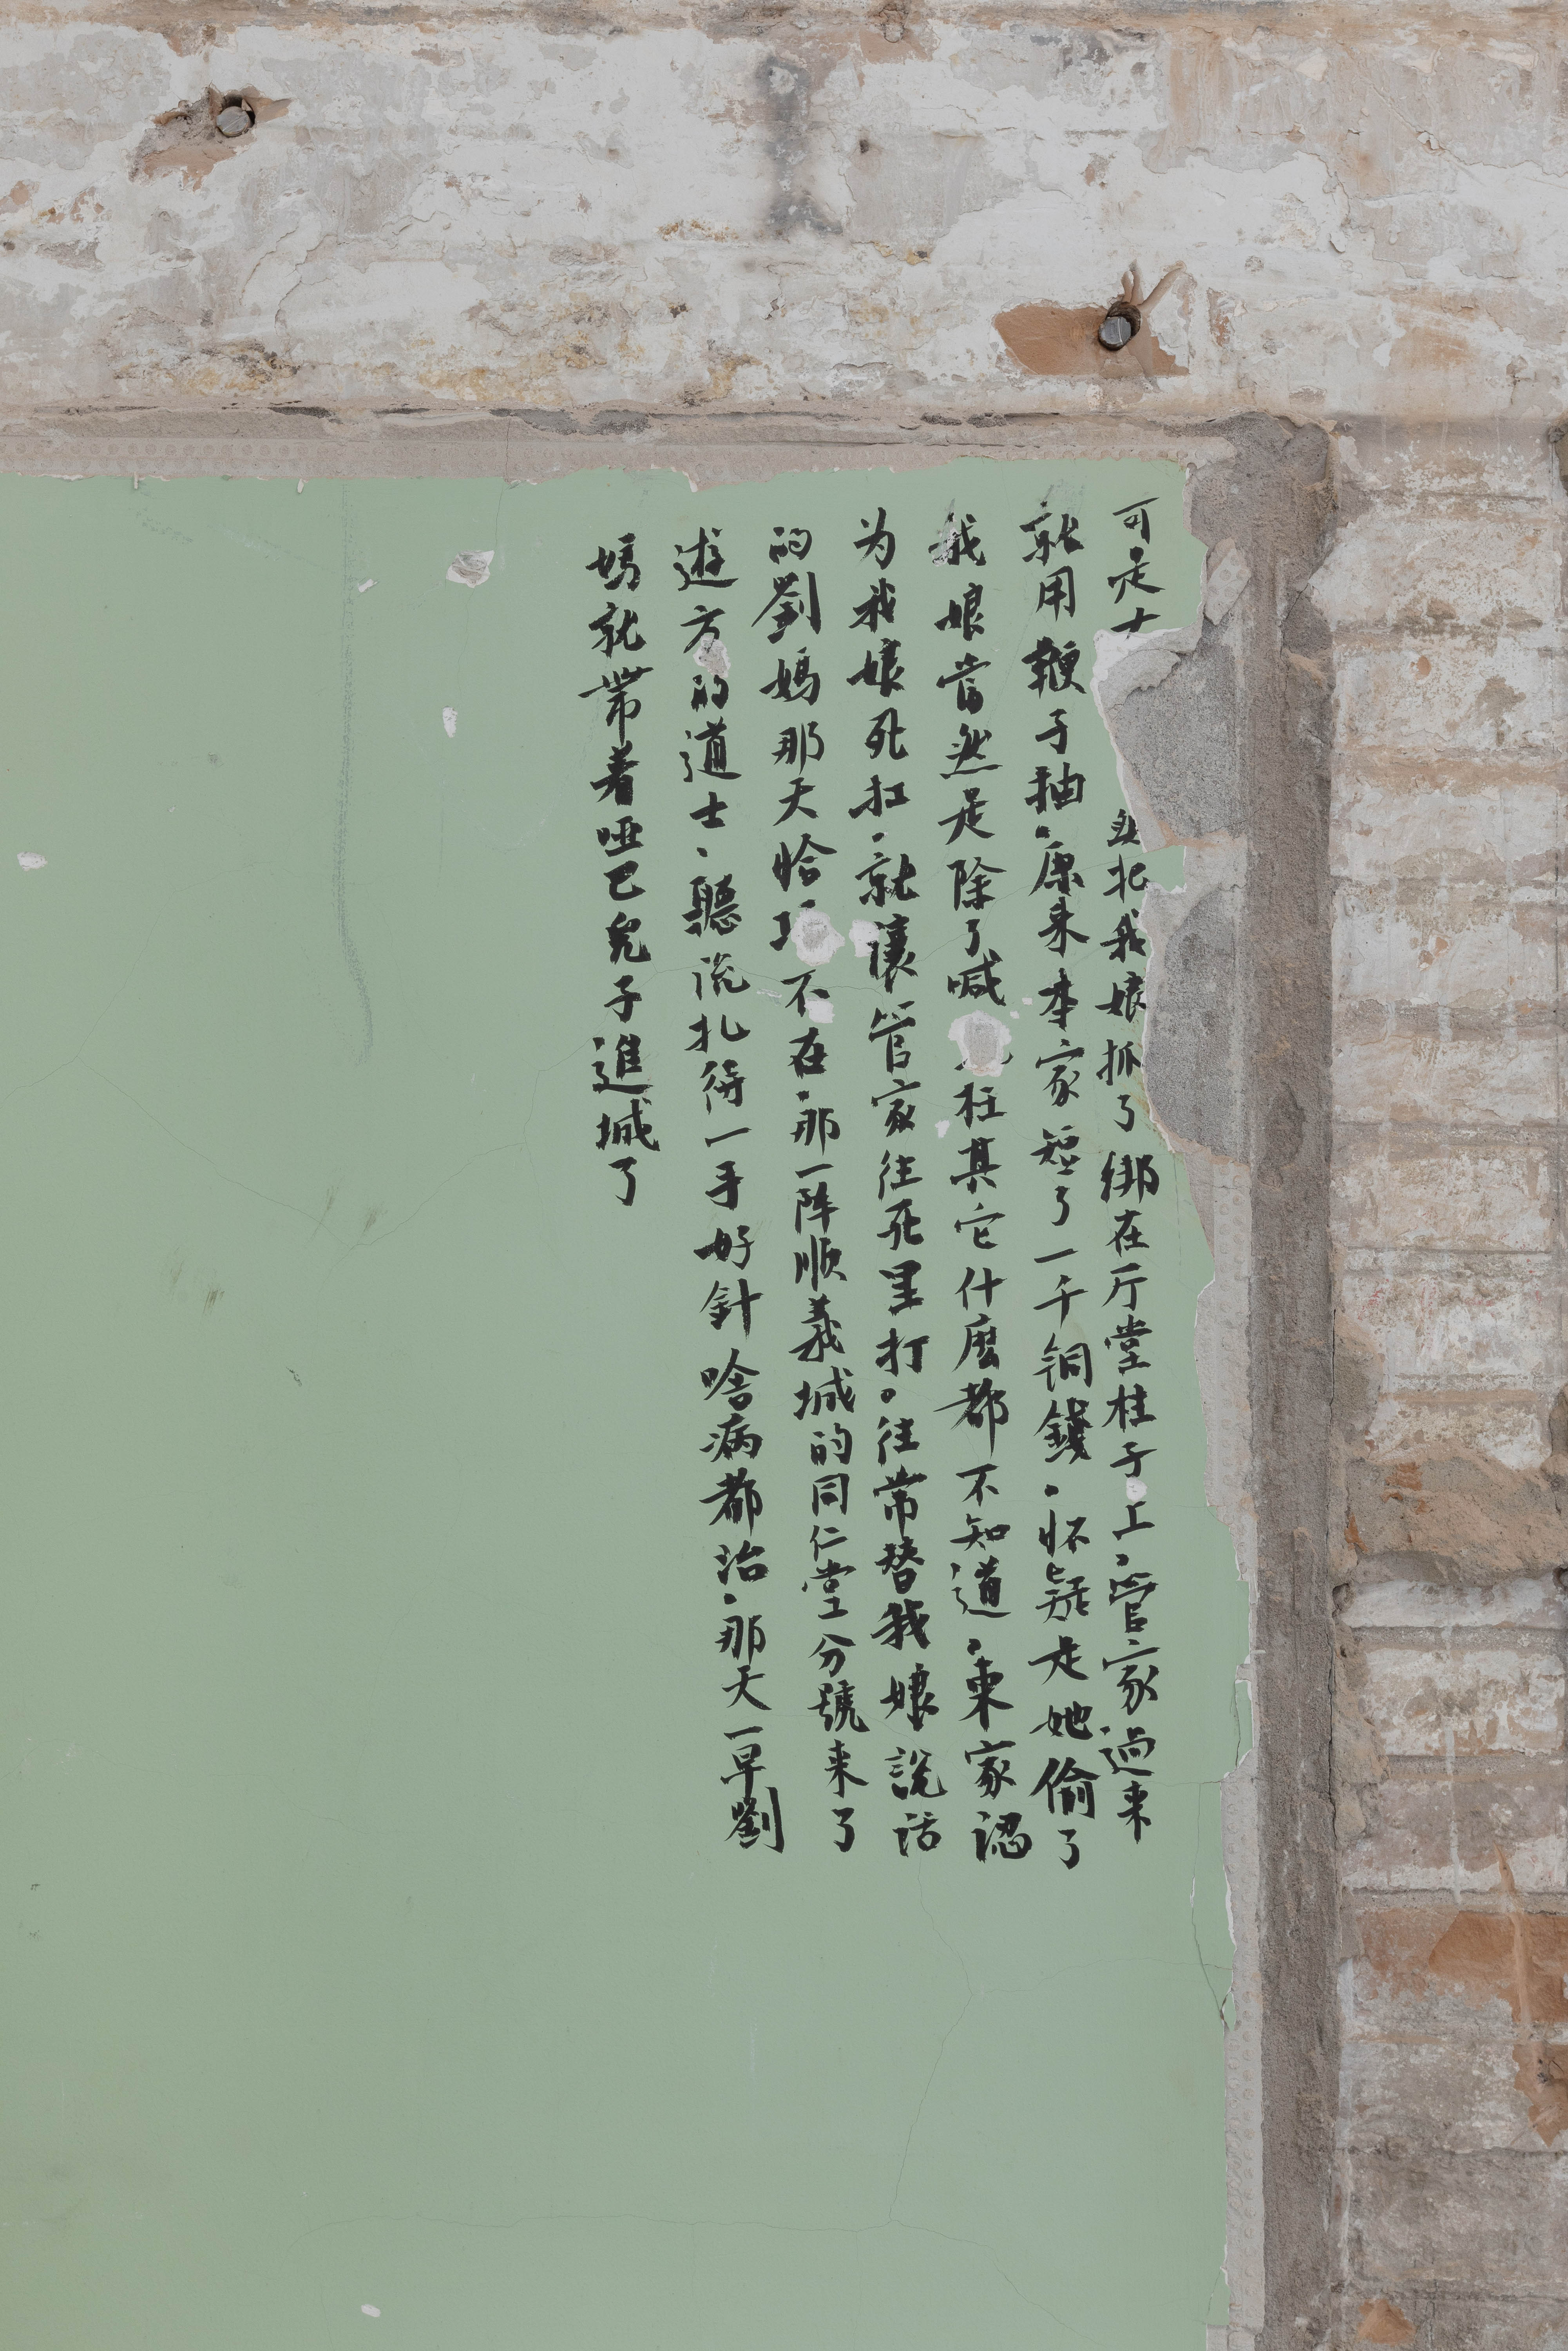 可是 把我娘抓了绑在厅堂柱子上、管家過来
就用鞭子抽。原来本家短了一千铜錢、怀疑是她偷了
我娘當然是除了喊 枉其它什麼都不知道、東家認
为我娘死扛、就讓管家往死里打。往常替我娘說话
的劉媽那天恰 不在、那一阵顺義城的同仁堂分號来了
遊方的道士、聽说扎得一手好針啥病都治、那天一早劉
媽就帶着哑巴兒子進城了